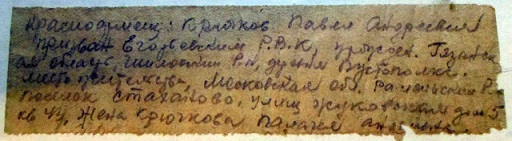 Красноармеец: Крючков Павел Андреевич
призван Егорьевским Р.В.К, урожен. Рязанск
ая область, Шиловский Р-н, деревня Пустополье.
место жительства, Московская обл. Раменский Р-
поселок Стаханово, улица Жуковского дом 5
кв 44, Жена Крючкова Пелагея